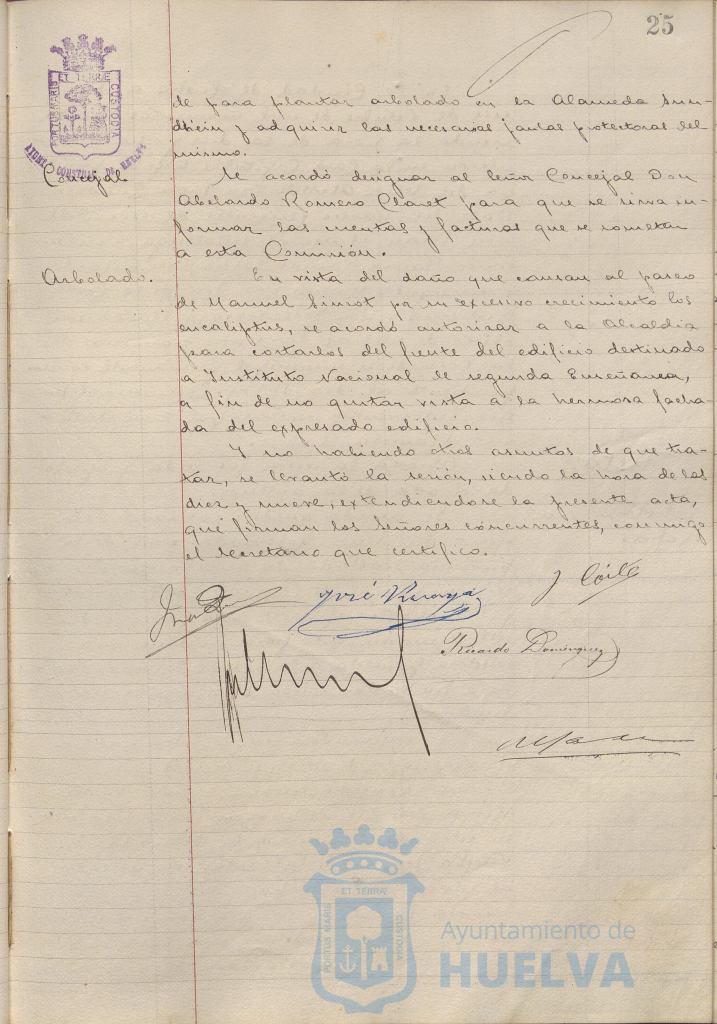 25
ET TERRÆ
PORTUS MARIS
CUSTODIA
AYUNT. CONSTNAL. DE HUELVA
de para plantar arbolado en la Alameda Sun-
dheim y adquirir las necesarias jaulas protectoras del
mismo.
Concejal
Se acordó designar al Señor Concejal Don
Abelardo Romero Claret para que se sirva in-
formar las cuentas y facturas que se sometan
a esta Comisión.
Arbolado.
En vista del daño que causan al paseo
de Manuel Siurot pr su excesivo crecimiento los
eucaliptus, se acordó autorizar a la Alcaldía
para cortarlos del frente del edificio destinado
a Instituto Nacional de segunda Enseñanza,
a fin de no quitar vista a la hermosa facha-
da del expresado edificio.
Y no habiendo otros asuntos de que tra-
tar, se levantó la sesión, siendo la hora de las
diez y nueve, extendiéndose la presente acta,
que firman los Señores concurrentes, conmigo
el Secretario que certifico.
José
Ricardo Domínguez
ET TERRÆ
PORTUS MARIS
CUSTODIA
Ayuntamiento de
HUELVA